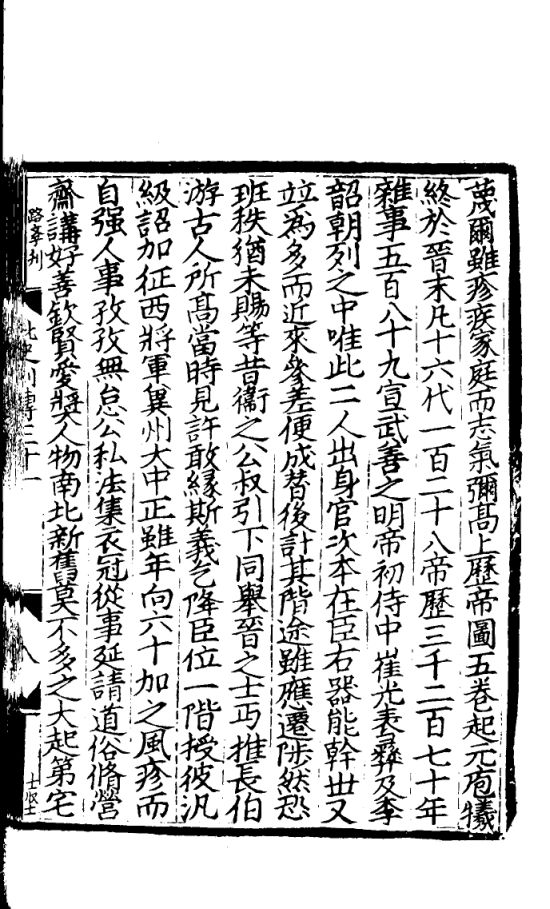 蔑爾雖疹疾家庭而志氣彌髙上歷帝圖五卷起元庖犧
終於晉末凡十六代一百二十八帝歷三千二百七十年
雜事五百八十九宣武善之明帝初侍中崔光表彝及李
韶朝列之中唯此二人出身官次本在臣右器能幹世又
竝為多而近來參差便成替後計其階途雖應遷陟然恐
班秩猶未賜等昔衞之公叔引下同舉晉之士丐推長伯
游古人所髙當時見許敢緣斯義乞降臣位一階授彼汎
級詔加征西將軍冀州大中正雖年向六十加之風疹而
自强人事孜孜無怠公私法集衣冠從事延請道俗脩營
齋講好善欽賢愛奬人物南北新舊莫不多之大起第宅
北史列傳三十一
八